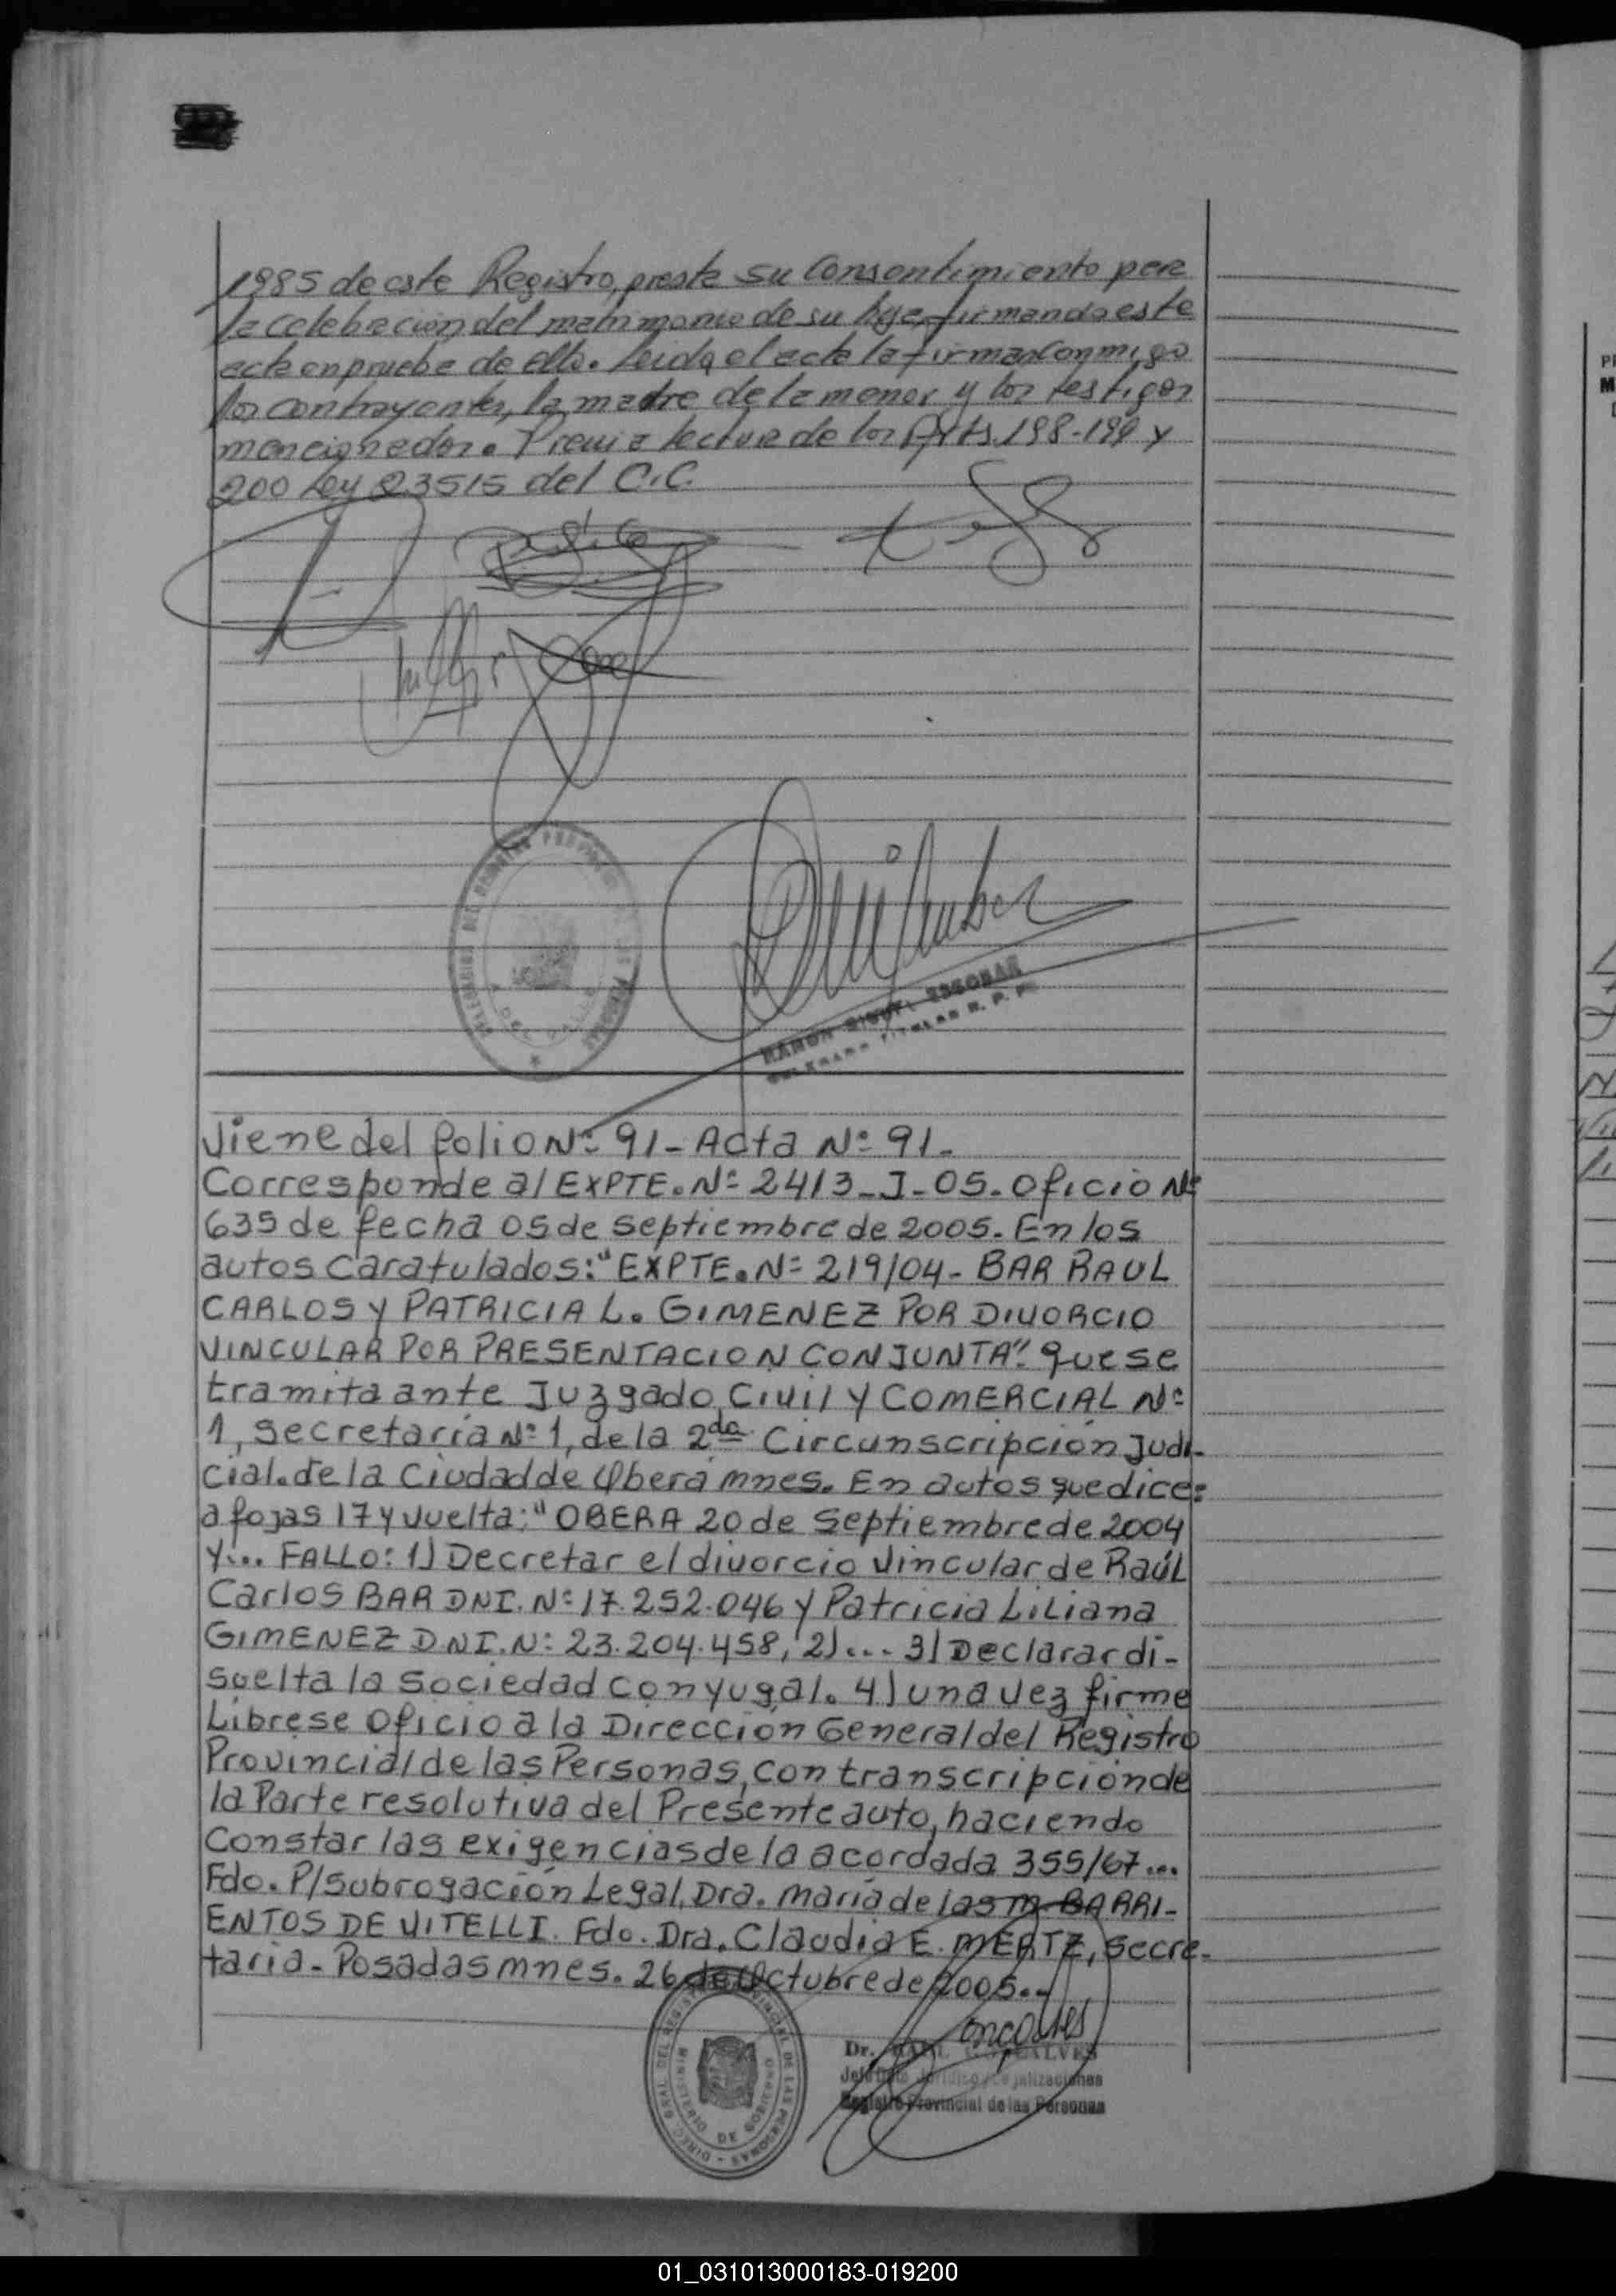 1985 de este Registro, presta su Consentimiento para
la celebración del matrimonio de su hija, firmando este
acta en prueba de ello. Leida el acta la firman Conmigo
los Contrayentes, la madre de la menor y los testigos
mencionados. Previa lectura de los Arts. 198-199 y
200 Ley 23515 del C.C.
RAMON MIGUEL ESCOBAR
DELEGADO TITULAR R. P. P.
Viene del folio Nº 91 - Acta Nº 91.
Corresponde al EXPTE. Nº 2413-J-05. Oficio Nº
635 de fecha 05 de septiembre de 2005. En los
autos Caratulados: "EXPTE. Nº 219/04 - BAR RAUL
CARLOS Y PATRICIA L. GIMENEZ POR DIVORCIO
VINCULAR POR PRESENTACION CONJUNTA". que se
tramita ante Juzgado Civil Y COMERCIAL Nº
1, secretaría Nº 1, de la 2da Circunscripción Judi-
cial. de la Ciudad de Oberá mnes. En autos que dice:
a fojas 17 y vuelta: "OBERA 20 de Septiembre de 2004
Y... FALLO: 1) Decretar el divorcio vincular de Raúl
Carlos BAR DNI. Nº 17.252.046 y Patricia Liliana
GIMENEZ D.N.I. Nº 23.204.458, 2)... 3) Declarar di-
suelta la sociedad conyugal. 4) una vez firme
Librese Oficio a la Dirección General del Registro
Provincial de las Personas, con transcripción de
la Parte resolutiva del Presente auto, haciendo
Constar las exigencias de la acordada 355/67...
Fdo. P/Subrogación Legal, Dra. María de las M. BARRI-
ENTOS DE VITELLI. Fdo. Dra. Claudia E. MERTZ, Secre-
taria - Posadas mnes. 26 de Octubre de 2005..
DIREC. GRAL. DEL REGISTRO PROVINCIAL DE LAS PERSONAS
MINISTERIO DE GOBIERNO
Dr. RAUL GONÇALVES
Jefe Dpto. Jurídico Legalizaciones
Registro Provincial de las Personas
01_031013000183-019200